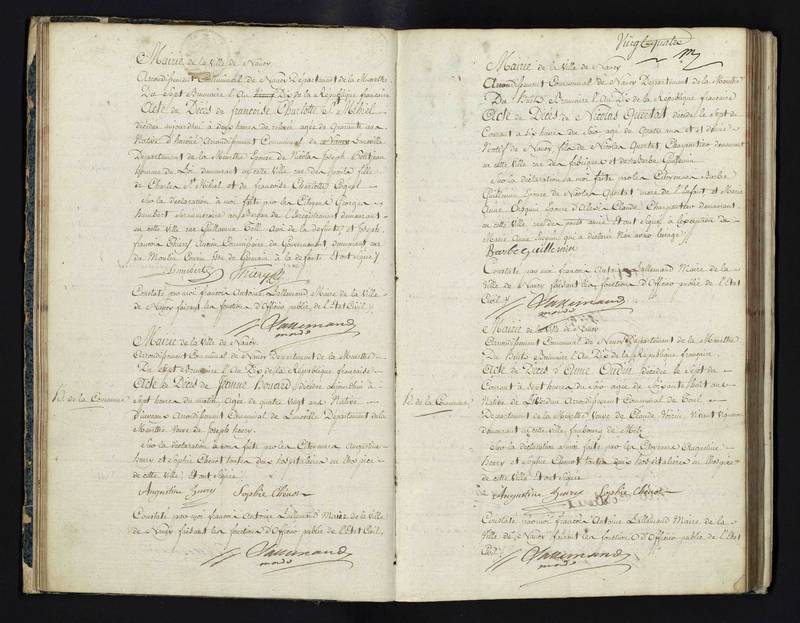 Mairie de la Ville de Nancy
Arrondissement Communal de Nancy Departement de la Meurthe
Du Sept Brumaire l'An Dix de la République française
Acte de Décès de françoise Charlotte St Mihiel
décédée aujourd'hui à deux heures de relevée agée de quarante ans
Native d' Arrondissement Communal de Lunéville
Departement de la Meurthe Epouse de Nicolas Joseph
de Loi demeurant en cette ville rue fille
de Charles St Mihiel et de françoise Charlotte
Sur la déclaration à moi faite par les Citoyens Georges
Humbert Surnumeraire au Bureau de l'Enregistrement demeurant
en cette ville rue Guillaume Tell Ami de la defunte, et Joseph
françois Thiery Ancien Commissaire du Gouvernement demeurant rue
du Moulin Cousin Issu de Germain à la defunte. Et ont signé
humbert Thiery
Constaté par moi françois Antoine Lallemand Maire de la Ville
de Nancy faisant les fonctions d'Officier public de l'Etat Civil
Lallemand
Mairie de la Ville de Nancy.
Arrondissement Communal de Nancy Departement de la Meurthe
Du Sept Brumaire l'An Dix de la République française
Acte de Décès de Jeanne Houard, décédée aujourd'hui à
H. de la Commune
Sept heures du matin, Agée de quatre vingt ans Native
d' Arrondissement Communal de Lunéville Département de la
Meurthe Veuve de Joseph henry.
Sur la déclaration à moi faite par les Citoyennes Augustine
henry et Sophie Chenot toutes deux hospitalieres en l'hospice
de cette Ville. Et ont Signé.
Augustine henry Sophie Chénot
Constaté par moi françois Antoine Lallemand Maire de la Ville
de Nancy faisant les fonctions d'Officier public de l'Etat Civil.
Lallemand
Vingt quatre
Mairie de la Ville de Nancy
Arrondissement Communal de Nancy Departement de la Meurthe
Du huit Brumaire l'An Dix de la République française
Acte de Décès de Nicolas Quentot décédé le Sept du
Courant à six heures du Soir agé de Quatre ans et demi
Natif de Nancy, fils de Nicolas Quentot, Charpentier, demeurant
en cette Ville rue des fabriques et de Barbe Guillemin
Sur la déclaration à moi faite par les Citoyennes Barbe
Guillemin Epouse de Nicolas Quentot mere de l'Enfant et Marie
Anne Epouse d' Claude Charpentier demeurant
en cette ville rue Et ont signé, à l'exception de
Marie Anne qui a déclaré Non avoir l'usage
Barbe guillemin
Constaté par moi françois Antoine Lallemand Maire de la
Ville de Nancy faisant les fonctions d'Officier public de l'Etat
Civil
Lallemand
Mairie de la Ville de Nancy
Arrondissement Communal de Nancy Departement de la Meurthe
Du huit Brumaire l'An Dix de la République française.
Acte de Décès d'Anne Oudin, décédée le Sept du
H. de la Commune
Courant à sept heures du Soir agée de Soixante huit ans
Native de Arrondissement Communal de Toul
Departement de la Meurthe Veuve de Claude Vigneron
demeurant en cette ville, faubourg de Metz
Sur la déclaration à moi faite par les Citoyennes Augustine
henry et Sophie Chenot toutes deux hospitalieres en l'hospice
de cette ville. Et ont Signé
Augustine henry Sophie Chénot
Constaté par moi françois Antoine Lallemand Maire de la
Ville de Nancy faisant les fonctions d'Officier public de l'Etat
Civil.
Lallemand